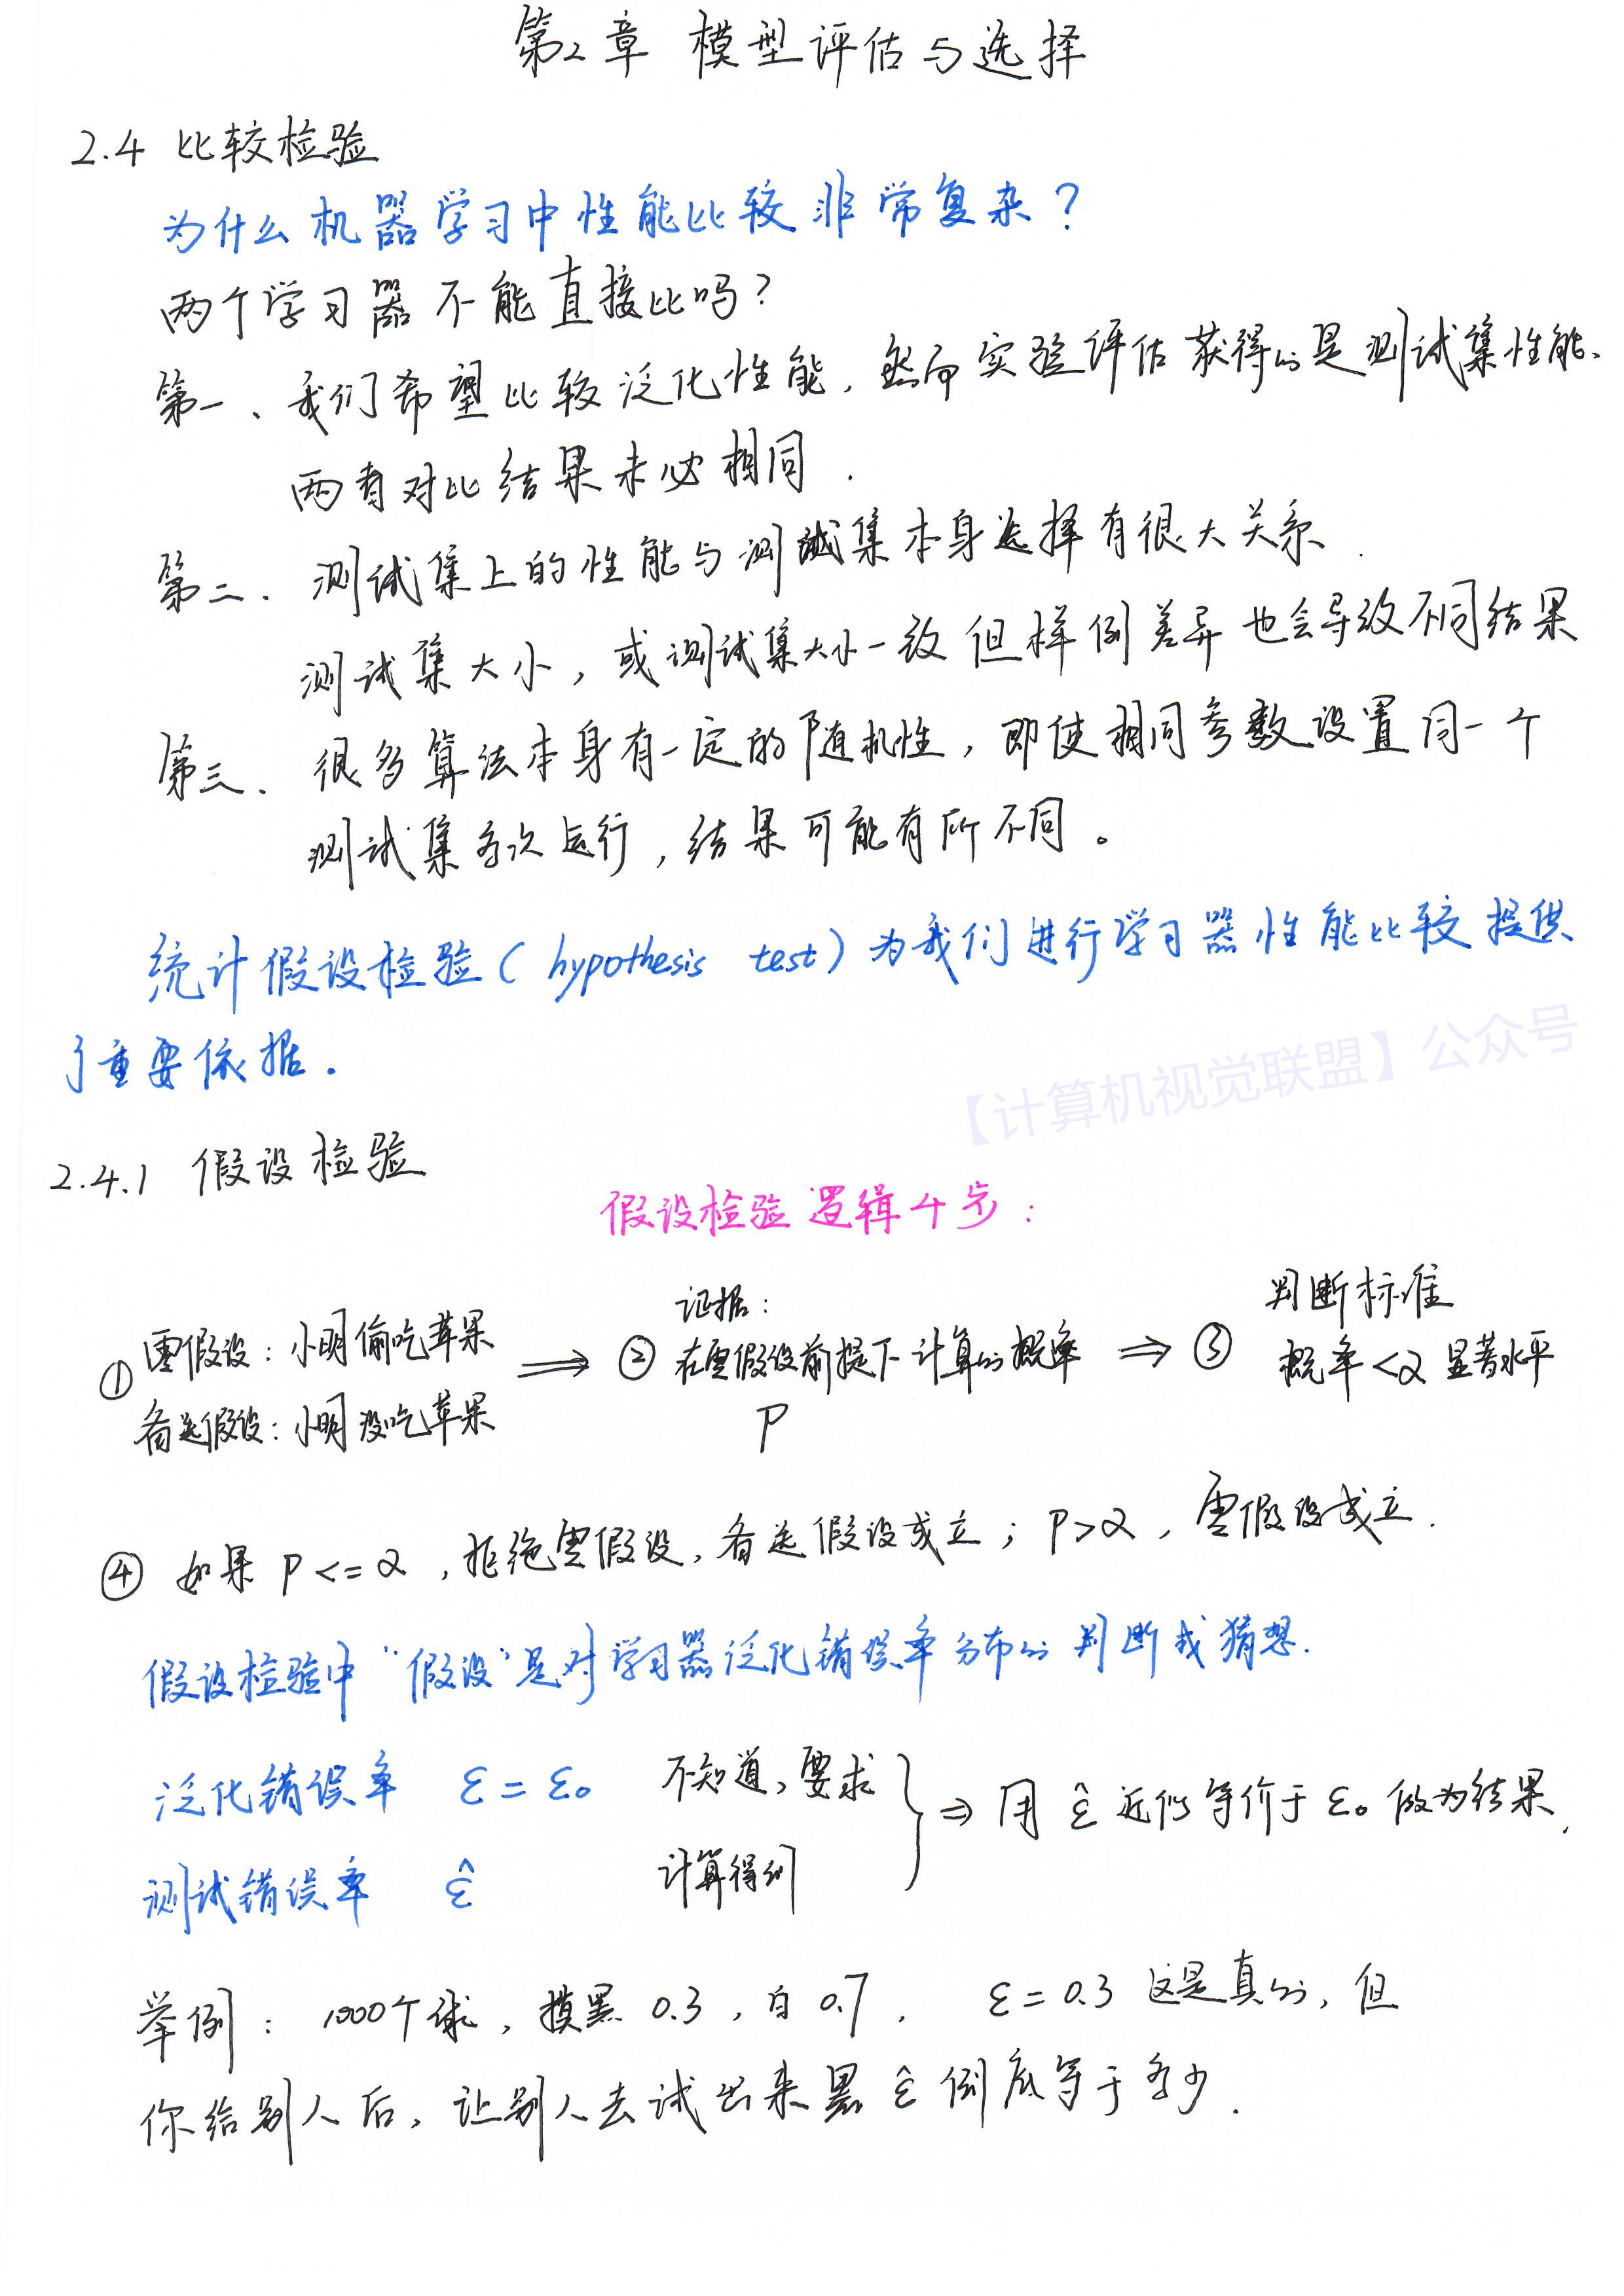 第2章 模型评估与选择
2.4 比较检验
为什么机器学习中性能比较非常复杂?
两个学习器不能直接比吗?
第一、我们希望比较泛化性能,然而实验评估获得的是测试集性能、
两者对比结果未必相同.
第二、测试集上的性能与测试集本身选择有很大关系.
测试集大小,或测试集大小一致但样例差异也会导致不同结果
第三、很多算法本身有一定的随机性,即使相同参数设置同一个
测试集多次运行,结果可能有所不同。
统计假设检验(hypothesis test)为我们进行学习器性能比较提供
了重要依据.
【计算机视觉联盟】公众号
2.4.1 假设检验
假设检验逻辑4步:
① 零假设:小明偷吃苹果
备选假设:小明没吃苹果
⇒ ② 证据:
在零假设前提下计算的概率
P
⇒ ③ 判断标准
概率<α 显著水平
④ 如果 P<=α,拒绝零假设,备选假设成立;P>α,零假设成立.
假设检验中“假设”是对学习器泛化错误率分布的判断或猜想.
泛化错误率 ε=ε₀ 不知道,要求
测试错误率 ε̂ 计算得到
⇒ 用 ε̂ 近似等价于 ε₀ 做为结果,
举例:1000个球,摸黑0.3,白0.7, ε=0.3 这是真的,但
你给别人后,让别人去试出来黑 ε̂ 倒底等于多少.